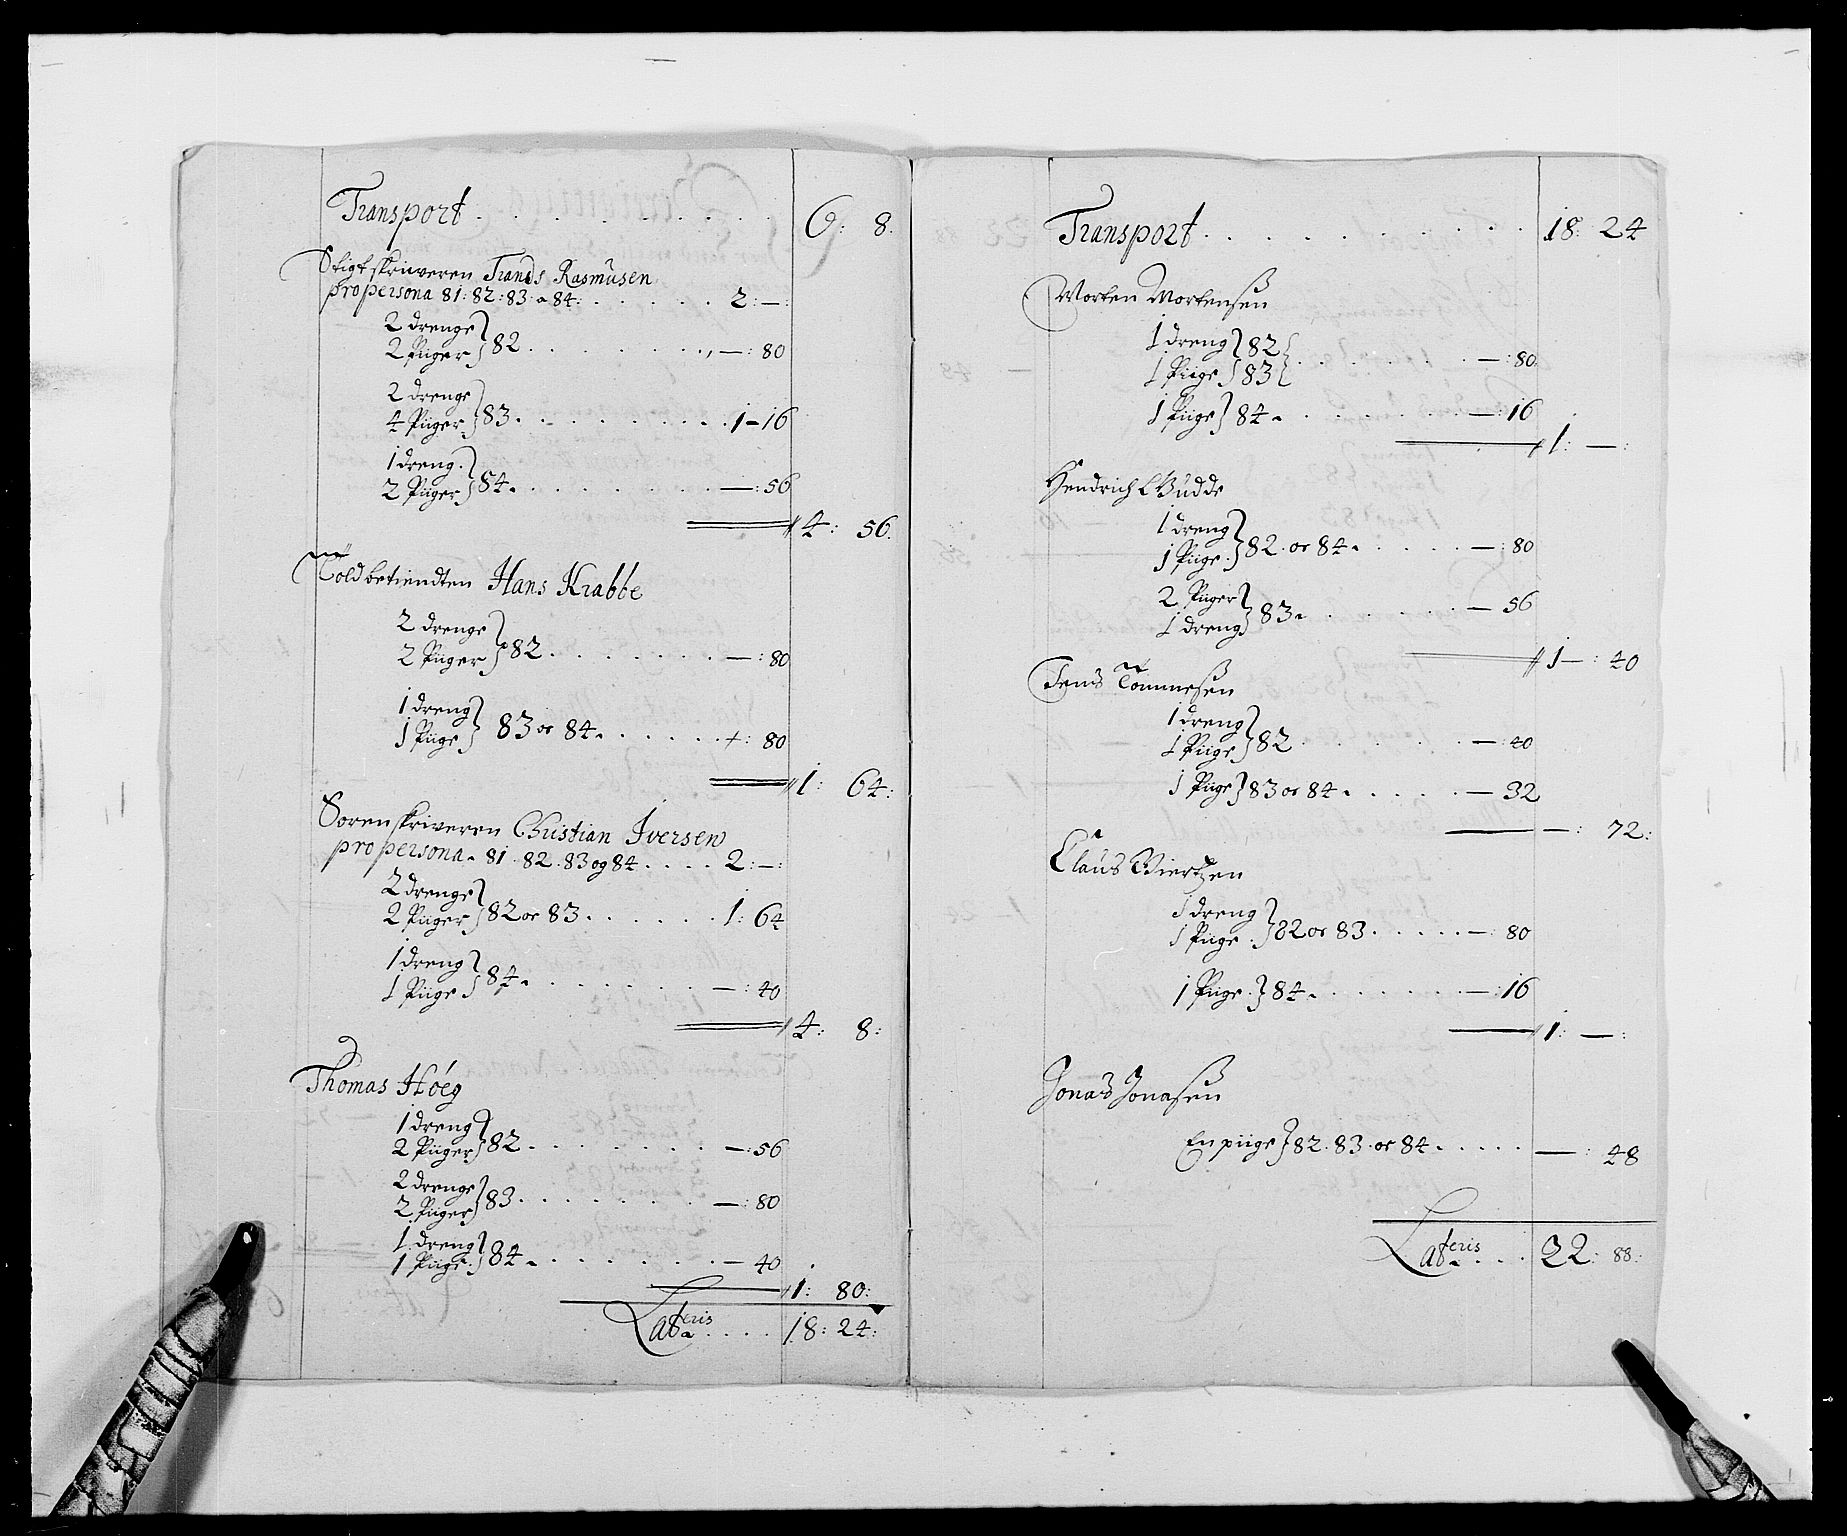 Transport . . . . . . . . . . 6: 8.
Stigtskriweren Frands Rasmusen
pro persona 81: 82: 83: a 84: . . . . . . 2: —:
2 drenge
2 Piiger } 82 . . . . . . . . —: 80
2 drenge
4 Piiger } 83 . . . . . . . . 1 — 16
1 dreng
2 Piiger } 84 . . . . . . . . —: 56
4: 56.
Toldbetiendten Hans Krabbe
2 drenge
2 Piiger } 82 . . . . . . . —: 80
1 dreng
1 Piige } 83 oc 84 . . . . . . —: 80
1: 64:
Sorenskriveren Christian Iversen
pro persona 81 . 82 . 83 og 84 . . . . 2: —:
2 drenge
2 Piiger } 82 oc 83 . . . . . . 1: 64
1 dreng
1 Piige } 84 . . . . . . . —: 40
4: 8:
Thomas Höeg
1 dreng
2 Piiger } 82 . . . . . . . —: 56
2 drenge
2 Piiger } 83 . . . . . . . —: 80
1 dreng
1 Piige } 84 . . . . . . . — 40
1: 80:
Lateris . . . . 18: 24:
Transport . . . . . . . . . . 18: 24
Morten Mortensen
1 dreng } 82
1 Piige } 83 } . . . . . . —: 80
1 Piige } 84 . . . . . . . —: 16
1: —:
Hendrich Budde
1 dreng
1 Piige } 82 . oc 84 . . . . . —: 80
2 Piiger
1 dreng } 83 . . . . . . . — 56
1 —: 40
Jens Tommesen
1 dreng
1 Piige } 82 . . . . . . . — 40
1 Piige } 83 oc 84 . . . . . — 32
—: 72:
Claus Wiertzen
1 dreng
1 Piige } 82 oc 83 . . . . . —: 80
1 Piige } 84 . . . . . . . —: 16
1: —:
Jonas Jonasen
En piige } 82 . 83 . oc 84 . . . . . —: 48
Lateris . . . 22: 88: